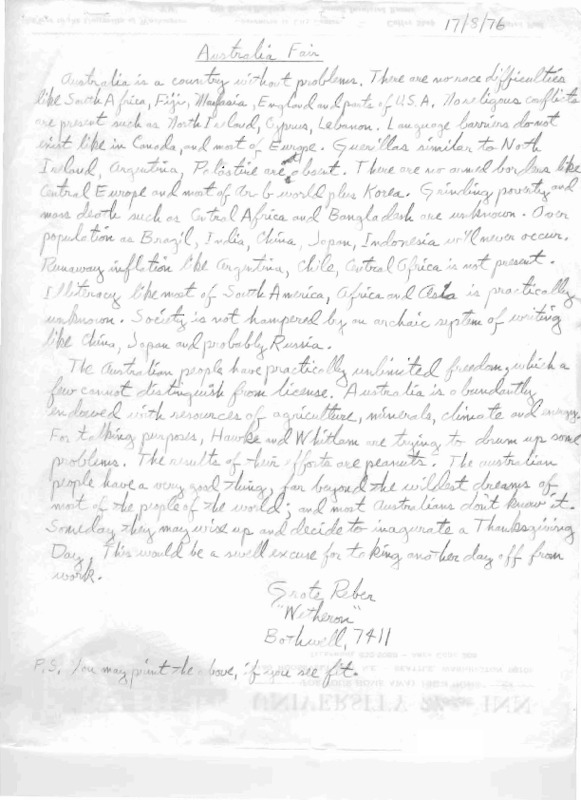 17/8/76
Australia Fair
Australia is a country without problems. There are no race difficulties
like South Africa, Fiji, Malaysia, England and parts of U.S.A. No religous conflicts
are present such as North Ireland, Cyprus, Lebanon. Language barriers do not
exist like in Canada, and most of Europe. Guerillas similar to North
Ireland, Argentina, Palestine are absent. There are no armed borders like
Central Europe and most of Arab world plus Korea. Grinding poverty and
mass death such as Central Africa and Bangladash are unknown. Over
population as Brazil, India, China, Japan, Indonesia will never occur.
Runaway inflation like Argentina, Chile, Central Africa is not present.
Illiteracy like most of South America, Africa and Asia is practically
unknown. Society is not hampered by an archaic system of writing
like China, Japan and probably Russia.
The Australian people have practically unlimited freedom, which a
few cannot distinguish from license. Australia is abundantly
endowed with resources of agriculture, minerals, climate and energy.
For talking purposes, Hawke and Whitlam are trying to drum up some
problems. The results of their efforts are peanuts. The australian
people have a very good thing, far beyond the wildest dreams of
most of the people of the world; and most Australians don't know it.
Someday they may wise up and decide to inagurate a Thanksgiving
Day. This would be a swell excuse for taking another day off from
work.
Grote Reber
"Witheron"
Bothwell, 7411
P.S. You may print the above, if you see fit.
UNIVERSITY INN